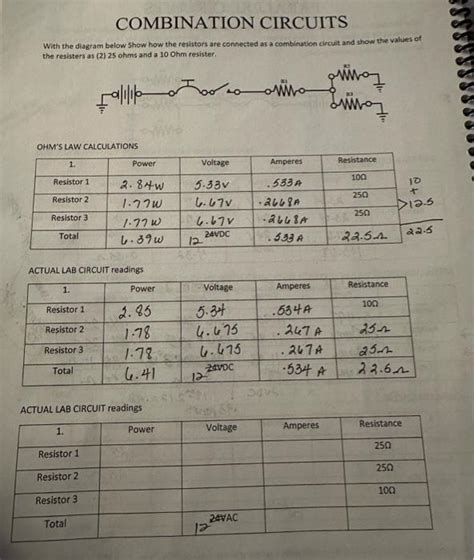 COMBINATION CIRCUITS
With the diagram below Show how the resistors are connected as a combination circuit and show the values of
the resisters as (2) 25 ohms and a 10 Ohm resister.
R1
R2
R3
OHM'S LAW CALCULATIONS
1. Power Voltage Amperes Resistance
Resistor 1 2.84W 5.33V .533A 10Ω 10
Resistor 2 1.77W 6.67V .2668A 25Ω + >12.5
Resistor 3 1.77W 6.67V .2668A 25Ω
Total 6.39W 12 24VDC .533A 22.5Ω 22.5
ACTUAL LAB CIRCUIT readings
1. Power Voltage Amperes Resistance
Resistor 1 2.85 5.34 .534A 10Ω
Resistor 2 1.78 6.675 .267A 25Ω
Resistor 3 1.78 6.675 .267A 25Ω
Total 6.41 12 24VDC .534 A 22.5Ω
ACTUAL LAB CIRCUIT readings
1. Power Voltage Amperes Resistance
Resistor 1 25Ω
Resistor 2 25Ω
Resistor 3 10Ω
Total 12 24VAC